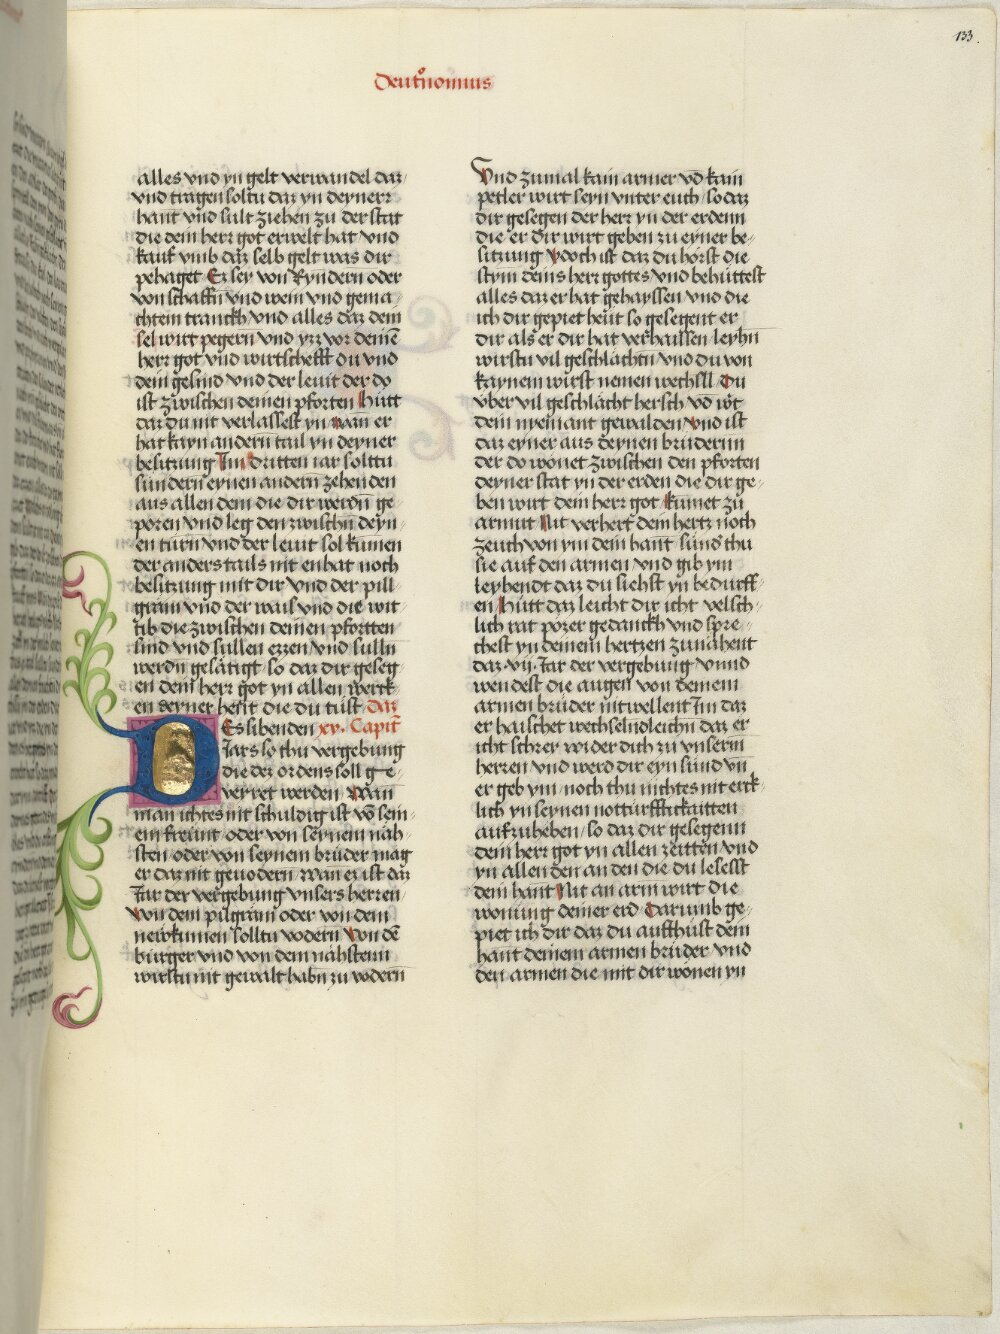 133
Deut͛nomius
alles vnd yn gelt verwandel daz
vnd tragen soltu daz yn deyner
hant vnd sult ziehen zu der stat
die dein herr got erwelt hat vnd
kauf vmb daz selb gelt was dir
pehaget Ez sey von Ryndern oder
von schaffn vnd wein vnd gema
chtem tranckh vnd alles daz dein
sel wirt pegern vnd yzz vor deinē
herr got vnd wirtschefft du vnd
dein gesind vnd der leuit der do
ist zwischen deinen pforten Hütt
daz du nit verlassest yn wan er
hat kayn andern tail yn deyner
besitzung Im dritten iar solttu
sundern eynen andern zehenden
aus allen dem die dir werdn ge
poren vnd leg den zwischn deyn
en türn vnd der leuit sol kumen
der anders tails nit enhat noch
besitzung mit dir vnd der pill
gram vnd der wais vnd die wit
tib die zwischen deinen pfortten
sind vnd sullen ezzen vnd sulln
werdn gesätigt so daz dir geseg
en dein herr got yn allen werck
en deyner hent die du tust daz
Es sibenden xv. Capit̄
Jars so thu vergebung
die dez ordens soll ge
veyret werden Wan
man ichtes nit schuldig ist võ sein
ein freünt oder von seynem näh
sten oder von seynem brüder mag
er daz nit geuodern wan ez ist daz
Jar der vergebung vnsers herren
Von dem pilgram oder von dem
newkumen solltu vodern Von dē
burger vnd von dem nähstenn
wirstu nit gewalt habn zu vodern
Vnd zumal kain armer vñ kain
petler wirt seyn vnter euch so daz
dir gesegen der herr yn der erdenn
die er dir wirt geben zu eyner be
sitzung Ydoch ist daz du hörst die
stym deins herr gottes vnd behüttest
alles daz er hat gehayssen vnd die
ich dir gepiet heüt so gesegent er
dir als er dir hat verhaissen leyhn
wirstu vil geschlächtn vnd du von
kaynem wirst nemen wechsll Du
vber vil geschlächt hersch vñ wt
dein nyemant gewalden Vnd ist
daz eyner aus deynen brüdernn
der do wonet zwischen den pforten
deyner stat yn der erden die dir ge
ben wirt dein herr got kumet zu
armut Nit verhert dein hertz noch
zeuch von ym dein hant sünd thu
sie auf den armen vnd gib ym
leyhendt daz du siehst yn bedurff
en Hütt daz leicht dir icht velsch
lich rat pozer gedanckh vnd spre
chest yn deinem hertzen zunähent
daz vij. Jar der vergebung vnnd
wendest die augen von deinem
armen brüder nit wellent Im daz
er haischet wechselndleichn daz er
icht schrer wider dich zu vnserm
herren vnd werd dir eyn sünd vn
er geb ym noch thu nichtes nit erck
lich yn seynen notturfftickaitten
aufzuheben so daz dir gesegenn
dein herr got yn allen zeitten vnd
yn allen den an den die du lesesst
dein hant Nit an arm wirt die
wonung deiner erd Darumb ge
piet ich dir daz du auffthüst dein
hant deinem armen brüder vnd
den armen die mit dir wonen yn